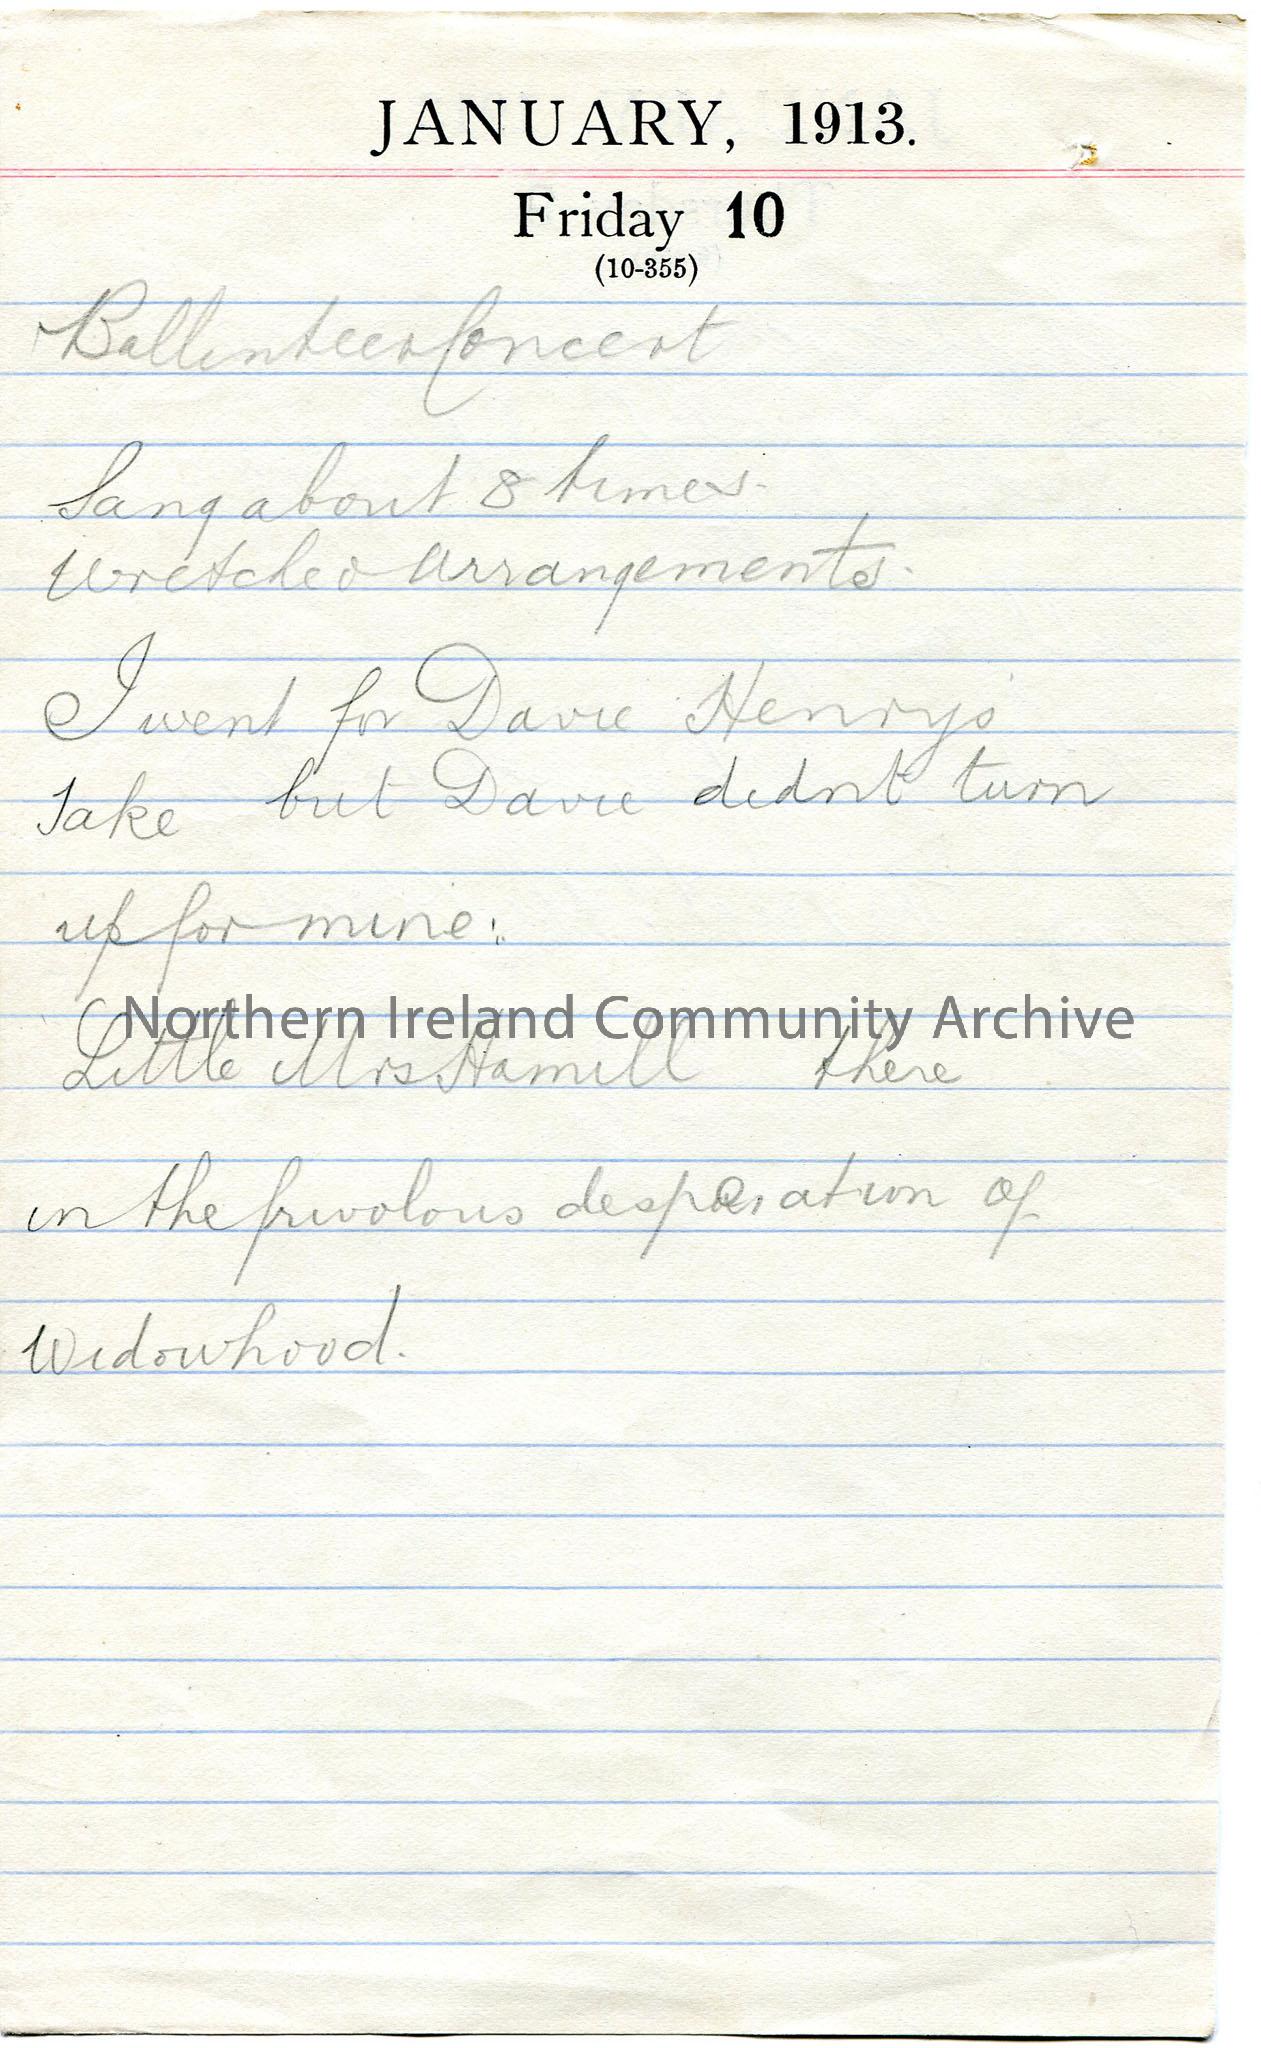 JANUARY, 1913.
Friday 10
(10-355)
Ballinteer Concert
Sang about 8 times.
Wretched arrangements.
I went for Davie Henry's
Sake but Davie didnt turn
up for mine.
Northern Ireland Community Archive
Little Mrs Hamill there
in the frivolous desperation of
Widowhood.